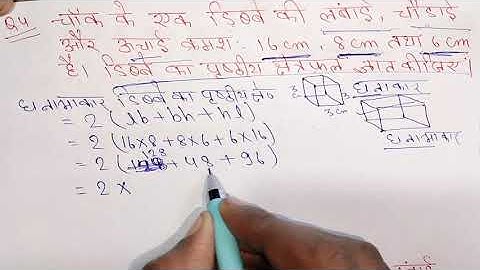 Q4 चॉक के एक डिब्बे की लंबाई, चौड़ाई
और ऊचाई क्रमश: 16cm, 8cm तथा 6cm
है। डिब्बे का पृष्ठीय क्षेत्रफल ज्ञात कीजिए।
घनाभाकार डिब्बे का पृष्ठीय क्षे०
= 2 (lb + bh + hl)
= 2 (16×8 + 8×6 + 6×16)
= 2 (128 + 48 + 96)
= 2 ×
घनाकार
3cm
घनाभाकार